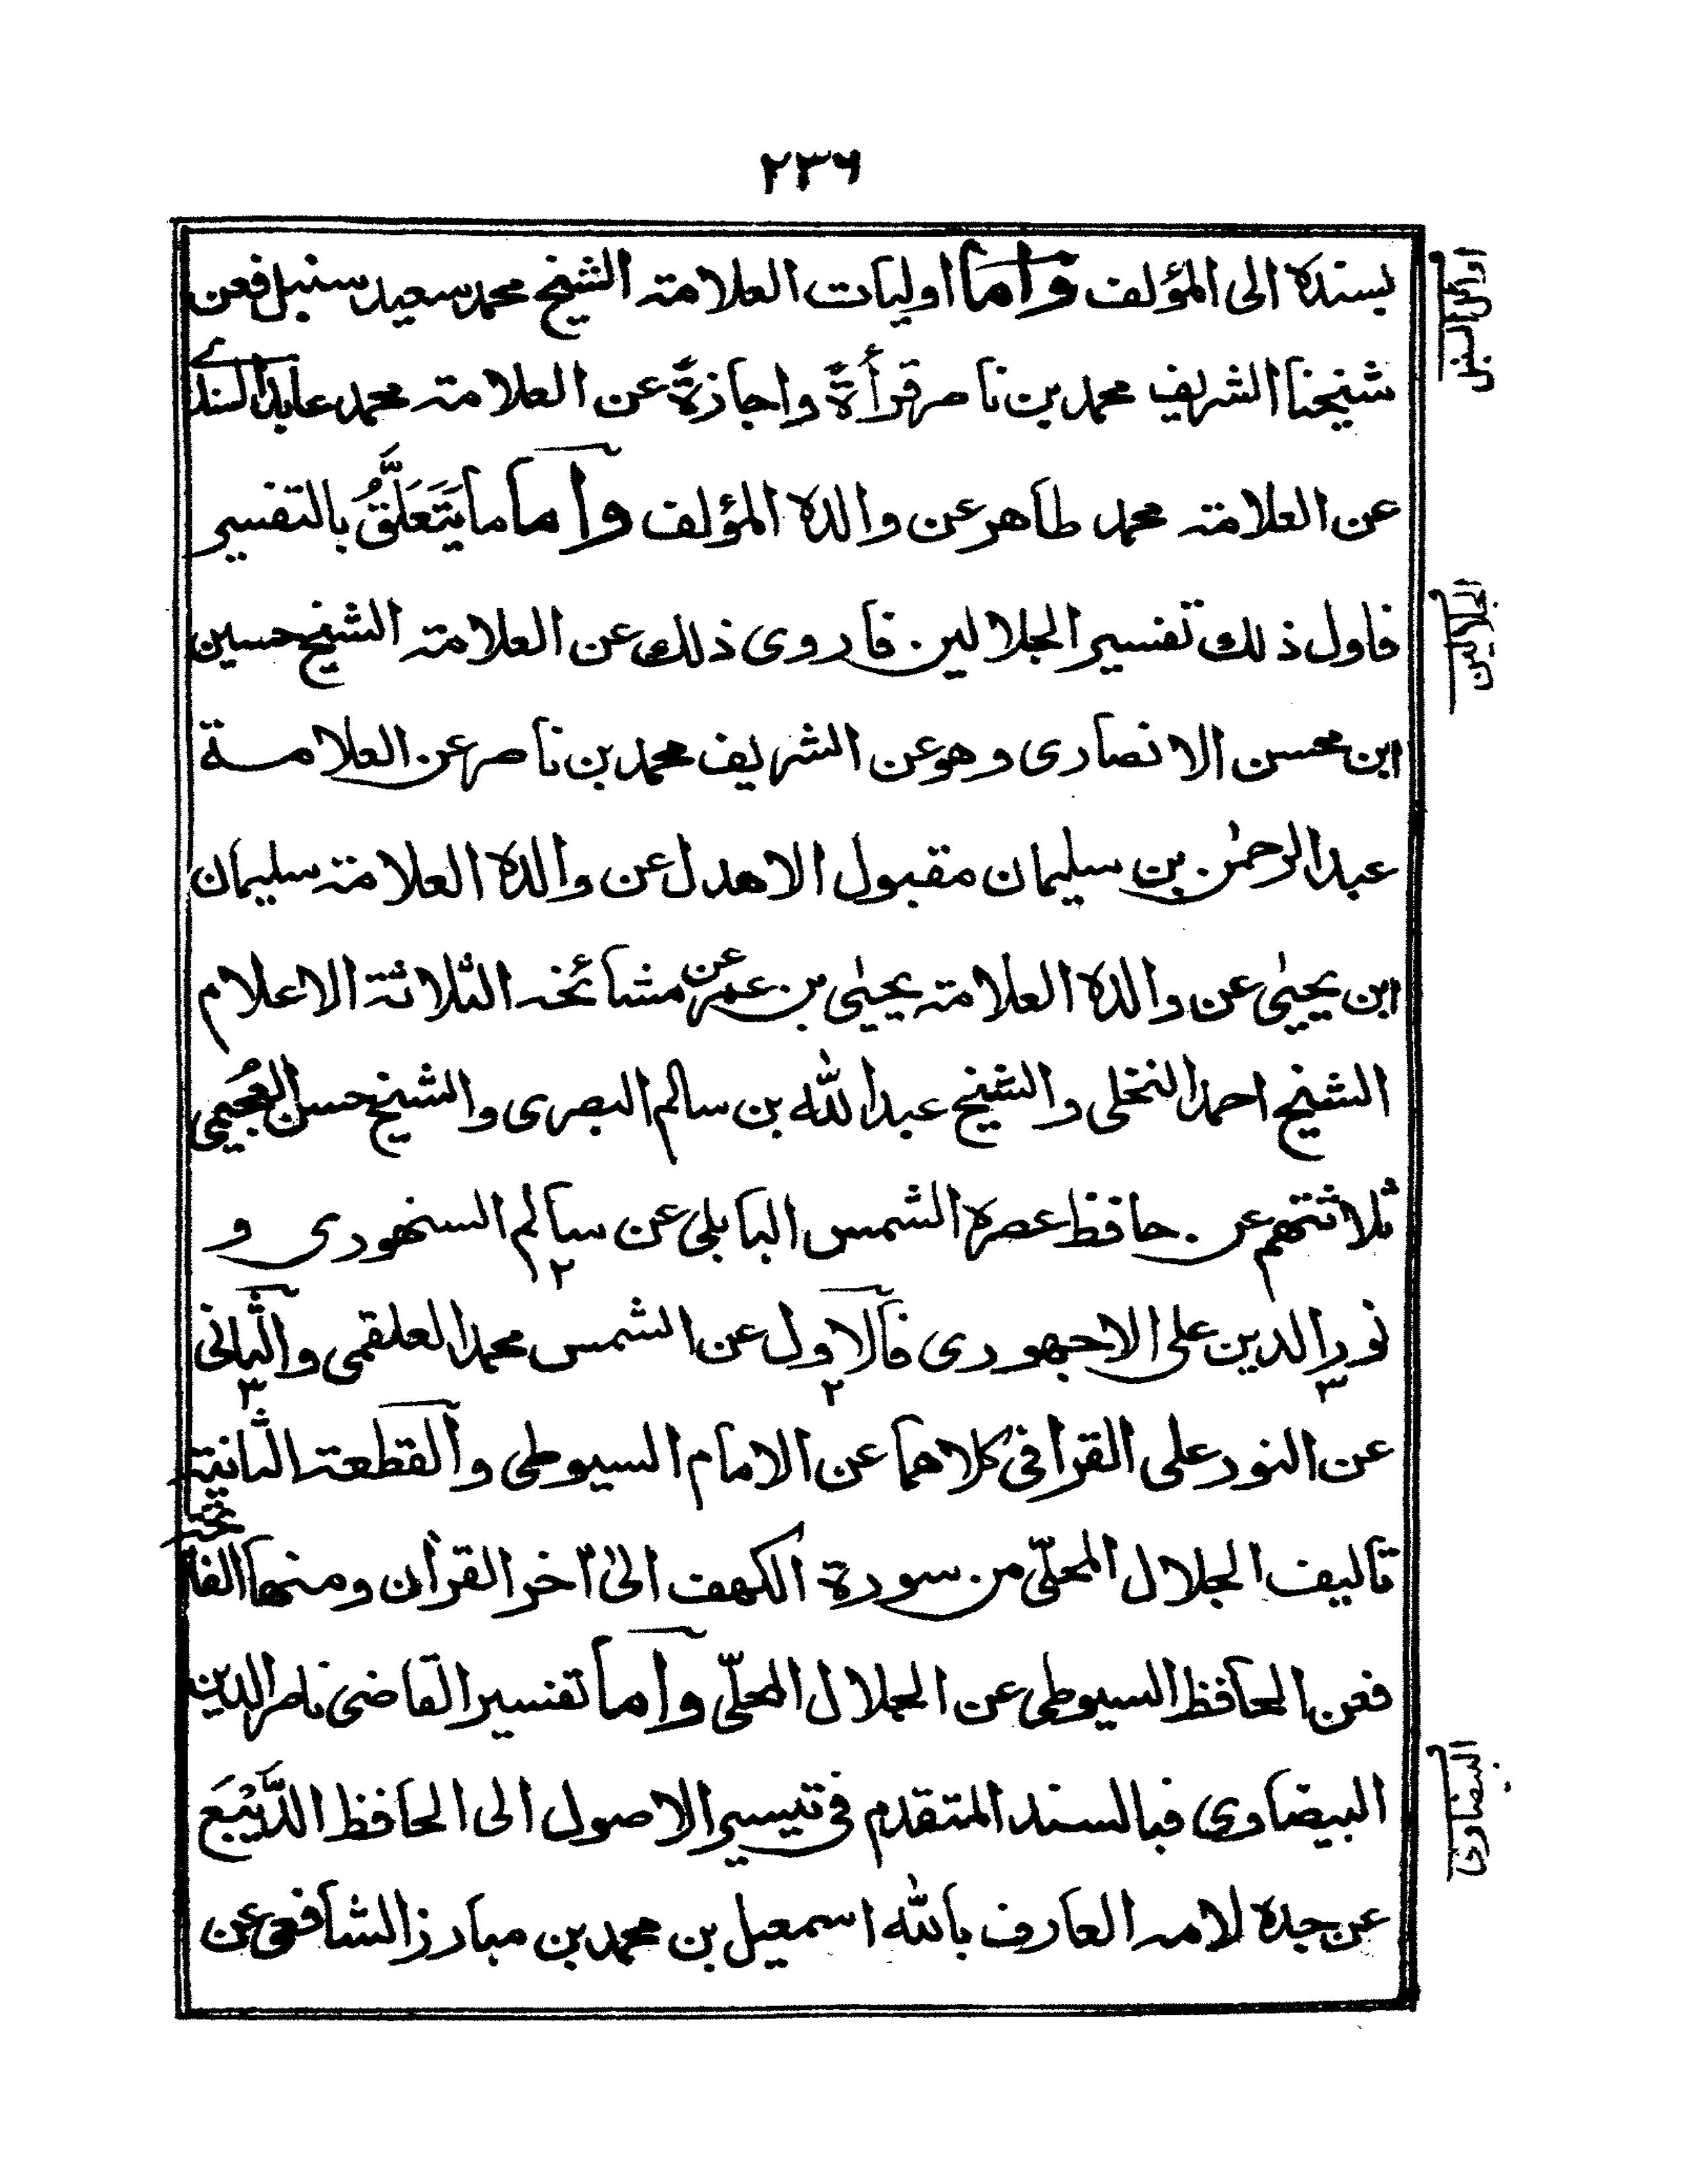 ٢٣٦
بسنده الى المؤلف واما اوليات العلامته الشيخ محمد سعيد سنبل فعن
شيخنا الشريف محمد بن ناصر قرأةً واجازةً عن العلامته محمد عابد السندے
عن العلامته محمد طاهر عن والده المؤلف واما ما يَتَعَلَّقُ بالتفسير
فاول ذلك تفسير الجلالين فاروى ذلك عن العلامته الشيخ حسين
ابن محسن الانصارى وهو عن الشريف محمد بن ناصر عن العلامة
عبد الرحمٰن بن سليمان مقبول الاهدل عن والده العلامته سليمان
ابن يحيىٰ عن والده العلامته يحيىٰ بن عمر عن مشائخه الثلاثة الاعلام
الشيخ احمد النخلى والشيخ عبد الله بن سالم البصرى والشيخ حسن العُجَيمى
ثلاثتهم عن حافظ عصره الشمس البابلى عن سالم السنهورى و
٢
نور الدين على الاجهورى فالاول عن الشمس محمد العلقمى والثانى
٣ ٢ ٣
عن النور على القرافى كلاهما عن الامام السيوطى والقطعته الثانيته
تاليف الجلال المحلّى من سورة الكهف الىٰ آخر القرآن ومنها الفاتحته
فعن الحافظ السيوطى عن الجلال المحلّى واما تفسير القاضى ناصر الدين
البيضاوى فبالسند المتقدم فى تيسير الاصول الى الحافظ الدَّيْبَع
عن جده لامه العارف بالله اسمعيل بن محمد بن مبارز الشافعى عن
اوائل السنبل
الجلالين
البيضاوى